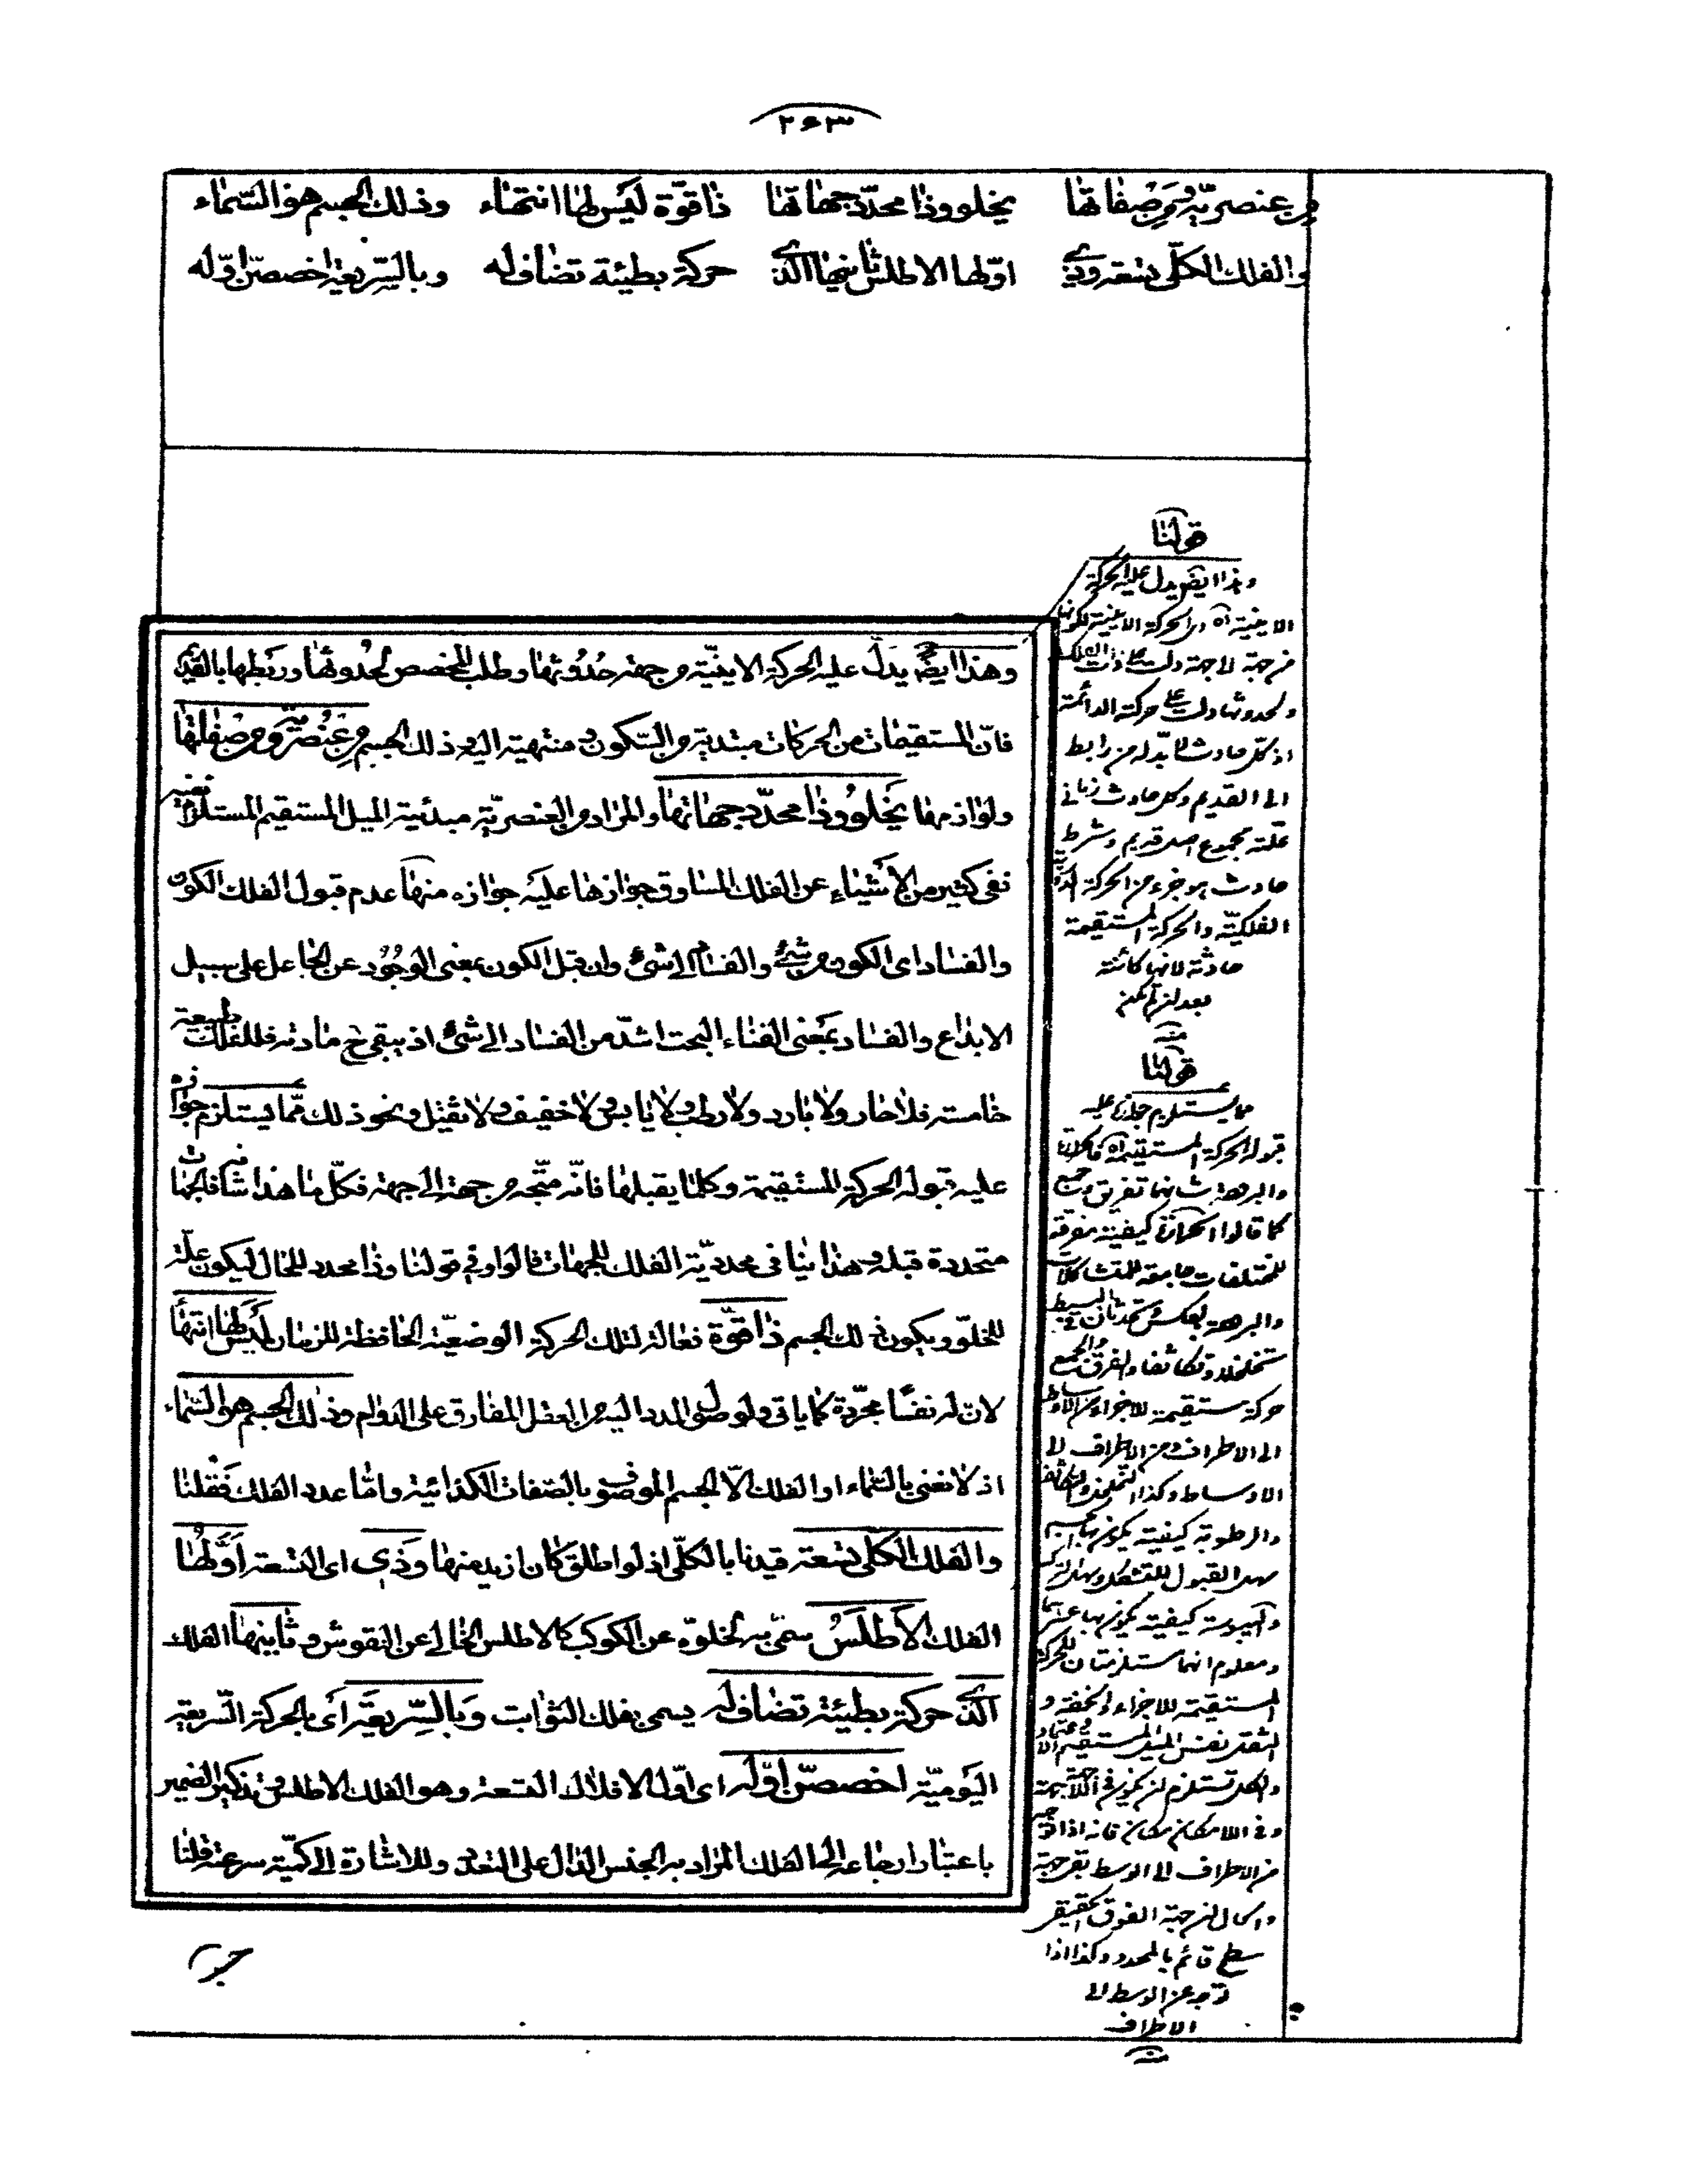 ٢۶٣
من عنصرية ومن صفاتها يخلو وذا محدد جهاتها ذا قوة ليس لها انتهاء وذلك الجسم هو السماء
والفلك الكلي تسعة وذي اولها الاطلس ثانيها الذي حركة بطيئة تضاف له وبالسريعة اخصصن اوله
وهذا ايضا يدل عليه الحركة الاينية من جهة حدوثها وطلب المخصص لحدوثها وربطها بالقديم
فان المستقيمات من الحركات مبتدية من السكون ومنتهية اليه وذلك الجسم من عنصرية ومن صفاتها
ولوازمها يخلو وذا محدد جهاتها والمراد من العنصرية مبدئية الميل المستقيم المستلزم نفيه
نفى كثير من الاشياء عن الفلك المساوق جوازها عليه جوازه منها عدم قبول الفلك الكون
والفساد اى الكون من شئ والفساد الى شئ وان قبل الكون بمعنى الوجود عن الجاعل على سبيل
الابداع والفساد بمعنى الفناء البحت اشد من الفساد الى شئ اذ يبقى ح مادته فللفلك طبيعة
خامسة فلا حار ولا بارد ولا رطب ولا يابس ولا خفيف ولا ثقيل ونحو ذلك مما يستلزم جوازه
عليه قبوله الحركة المستقيمة وكلما يقبلها فانه متجه من جهة الى جهة فكل ما هذا شانه فالجهات
متحددة قبله وهذا ينافى محددية الفلك للجهات قالوا وفي قولنا وذا محدد للحال ليكون علة
للخلو ويكون ذلك الجسم ذا قوة فعالة لتلك الحركة الوضعية الحافظة للزمان ليس لها انتهاء
لان له نفسا مجردة كما ياتى ولوصول المدد اليه من العقل المفارق على الدوام وذلك الجسم هو السماء
اذ لا نعنى بالسماء او الفلك الا الجسم الموصوف بالصفات الكذائية واما عدد الفلك فقلنا
والفلك الكلى تسعة قيدنا بالكلى اذ لو اطلق كان ازيد منها وذى اى التسعة اولها
الفلك الاطلس سمى به لخلوه عن الكوكب كالاطلس الخالى عن النقوش وثانيها الفلك
الذى حركة بطيئة تضاف له يسمى بفلك الثوابت وبالسريعة اى بالحركة السريعة
اليومية اخصصن اوله اى اول الافلاك التسعة وهو الفلك الاطلس وتذكير الضمير
باعتبار ارجاعه الى الفلك المراد به الجنس الدال على التعدد وللاشارة الى كمية سرعته قلنا
قولنا
وهذا ايضا يدل عليه الحركة
الاينية اه اى الحركة الاينية لكونها
من جهة لاجهة دلت على ذات الفلك
ولحدوثها دلت على حركته الدائمة
اذ كل حادث لا بد له من رابط
الى القديم وكل حادث زمانى
علته مجموع اصل قديم وشرط
حادث هو جزء من الحركة الدورية
الفلكية والحركة المستقيمة
حادثة لانها كائنة
بعد ان لم تكن
منه
قولنا
مما يستلزم جوازه عليه
قبوله الحركة المستقيمة اه فالحرارة
والبرودة شانهما تفريق وجمع
كما قالوا الحرارة كيفية مفرقة
للمختلفات جامعة للمتشاكلات
والبرودة بالعكس وتحدثان في البسيط
تخلخلا وتكاثفا والفرق والجمع
حركة مستقيمة للاجزاء من الاوساط
الى الاطراف ومن الاطراف الى
الاوساط وكذا التخلخل والتكاثف
والرطوبة كيفية يكون بها الجسم
سهل القبول للتشكل وسهل الترك
واليبوسة كيفية يكون بها عسرهما
ومعلوم انهما مستلزمتان للحركة
المستقيمة للاجزاء والخفة و
الثقل نفس الميل المستقيم
والكل تستلزم ان يكون في اللاجهة جهة
وفي اللامكان مكان فانه اذا توجه
من الاطراف الى الوسط تفرجية
والحال ان جهة الفوق الحقيقى
سطح قائم بالمحدد وكذا اذا
توجه عن الوسط الى
الاطراف
منه